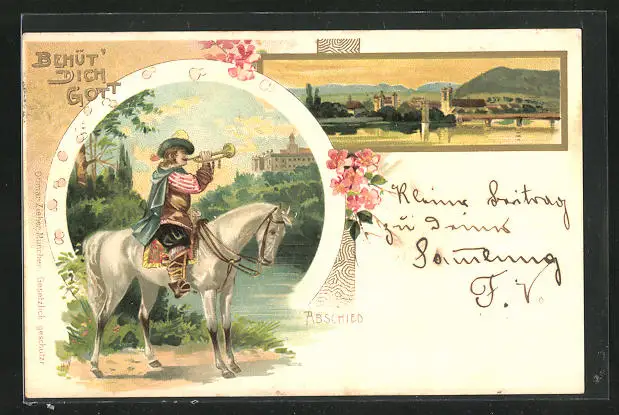 BEHÜT'
DICH
GOTT
Ottmar Zieher, München. Gesetzlich geschützt
ABSCHIED
Kleiner Beitrag
zu Deiner
Sammlung
F. V.